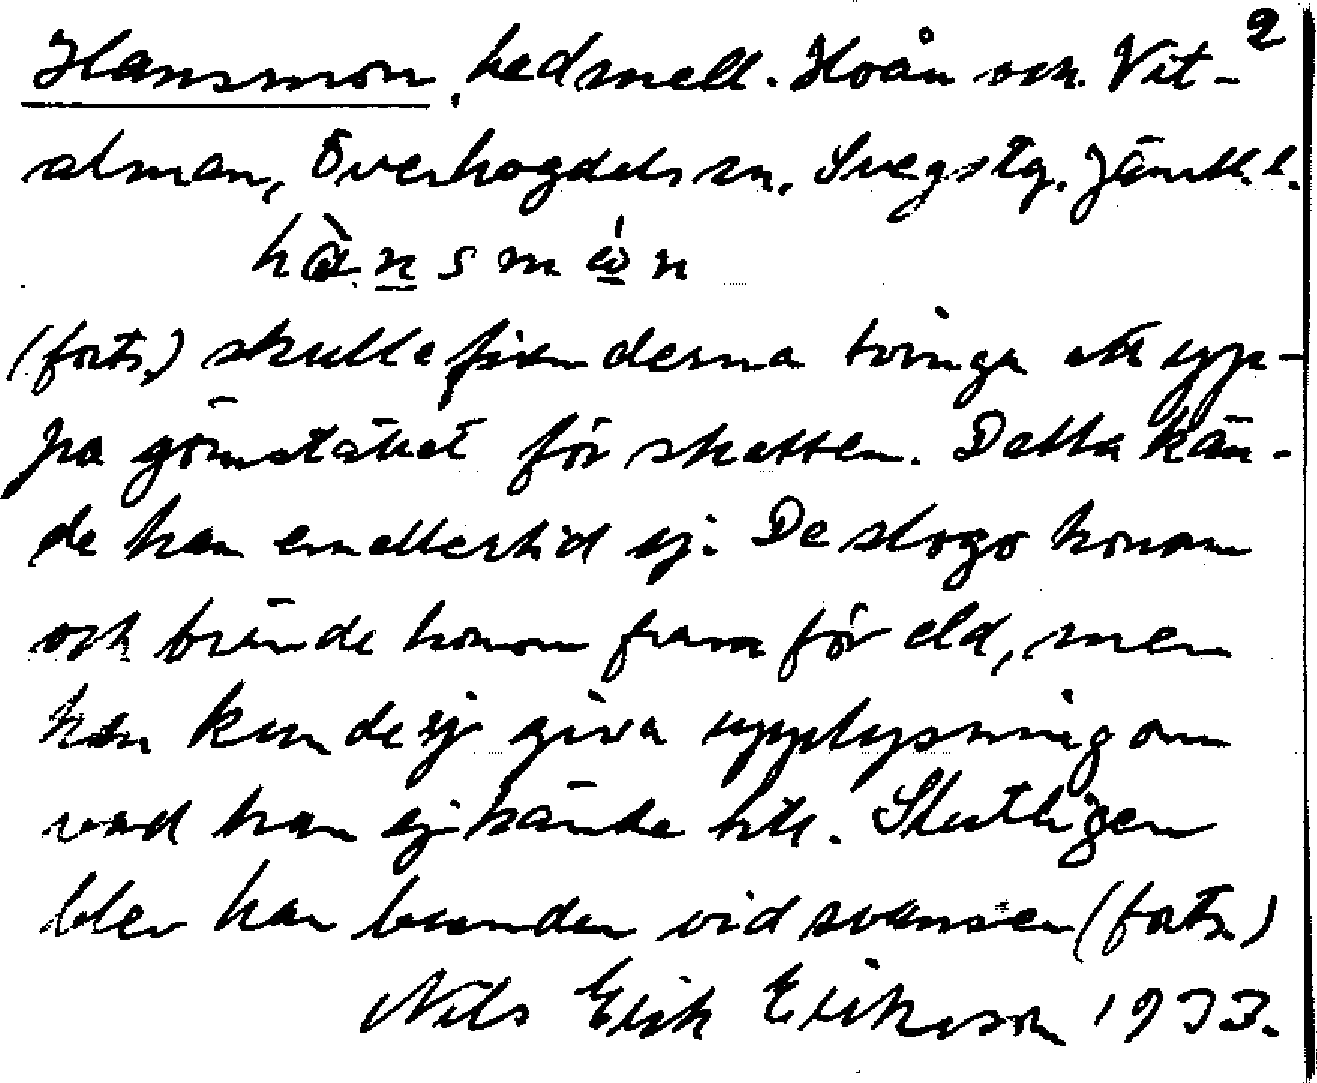 Hansmon, hed mell. Hoån och Vit- 2
alman, Överhogdals sn, Svegs tg. Jämtl. l.
hànsmón
(forts.) skulle fienderna tvinga att yp-
pa gömstället för skatten. Detta kän-
de han emellertid ej. De slogo honom
och brände honom framför eld, men
han kunde ej giva upplysning om
vad han ej kände till. Slutligen
blev han bunden vid svansen (forts.)
Nils Erik Eriksson 1933.